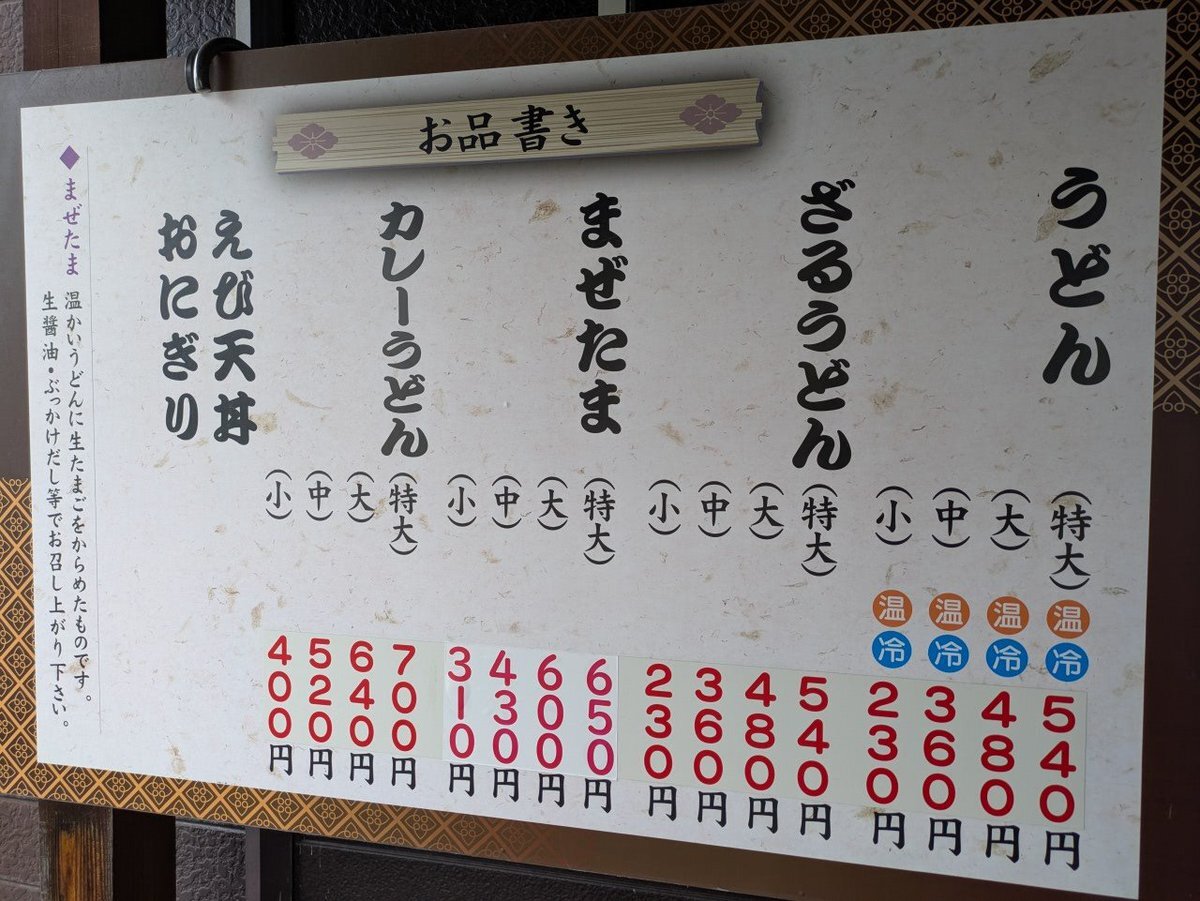 お品書き
うどん
（特大）温冷540円
（大）温冷480円
（中）温冷360円
（小）温冷230円
ざるうどん
（特大）540円
（大）480円
（中）360円
（小）230円
まぜたま
（特大）650円
（大）600円
（中）430円
（小）310円
カレーうどん
（特大）700円
（大）640円
（中）520円
（小）400円
えび天丼
おにぎり
◆まぜたま 温かいうどんに生たまごをからめたものです。
生醤油・ぶっかけだし等でお召し上がり下さい。